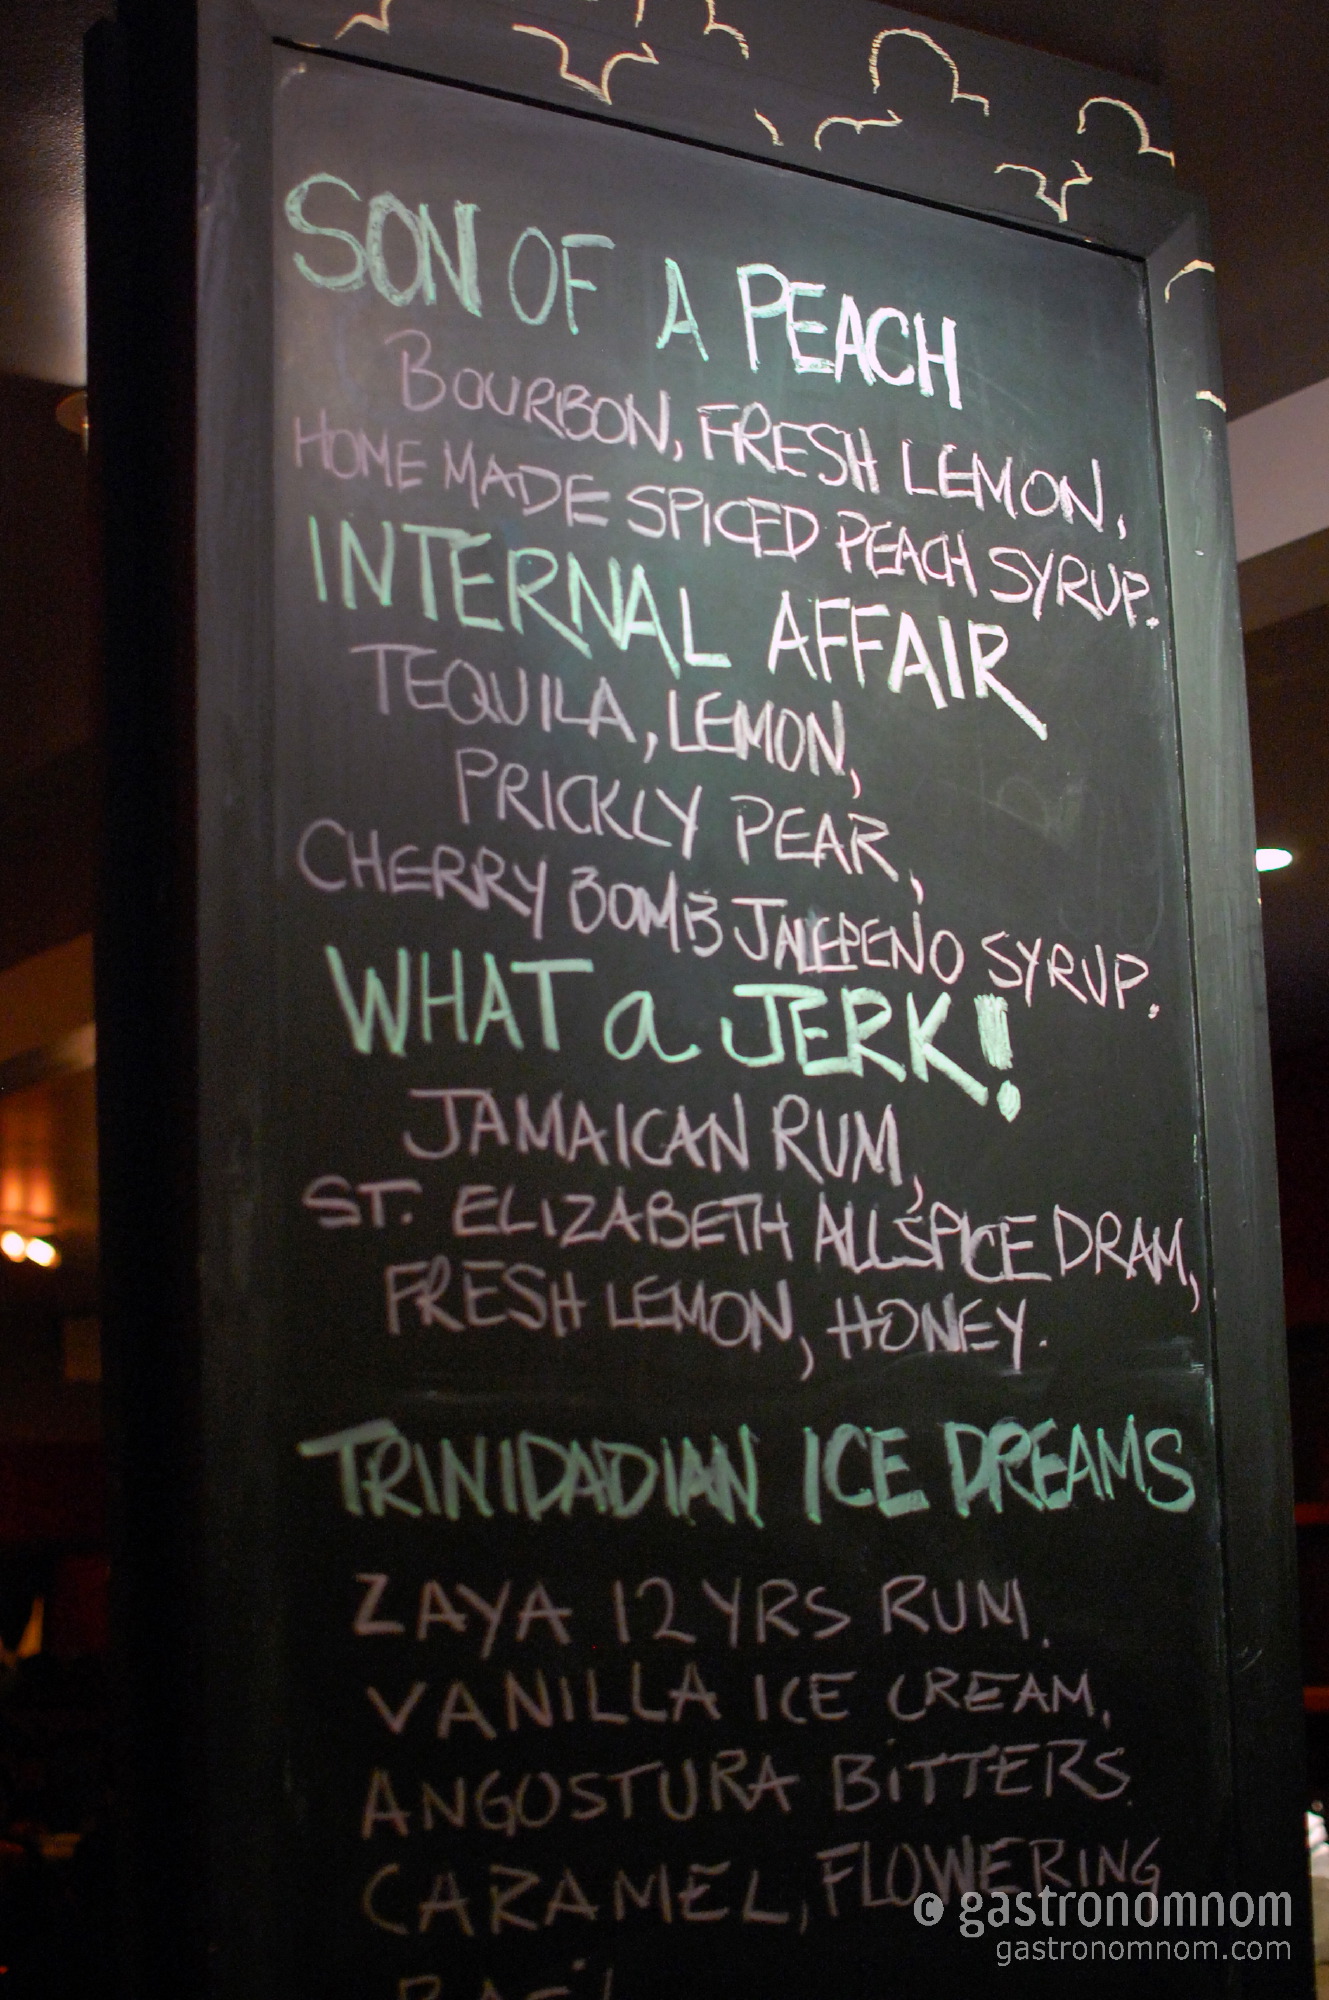 SON OF A PEACH
BOURBON, FRESH LEMON,
HOME MADE SPICED PEACH SYRUP.
INTERNAL AFFAIR
TEQUILA, LEMON,
PRICKLY PEAR,
CHERRY BOMB JALEPEÑO SYRUP.
WHAT a JERK!
JAMAICAN RUM,
ST. ELIZABETH ALLSPICE DRAM,
FRESH LEMON, HONEY.
TRINIDADIAN ICE DREAMS
ZAYA 12 YRS RUM,
VANILLA ICE CREAM,
ANGOSTURA BiTTERS.
CARAMEL, FLOWERING
© gastronomnom
gastronomnom.com